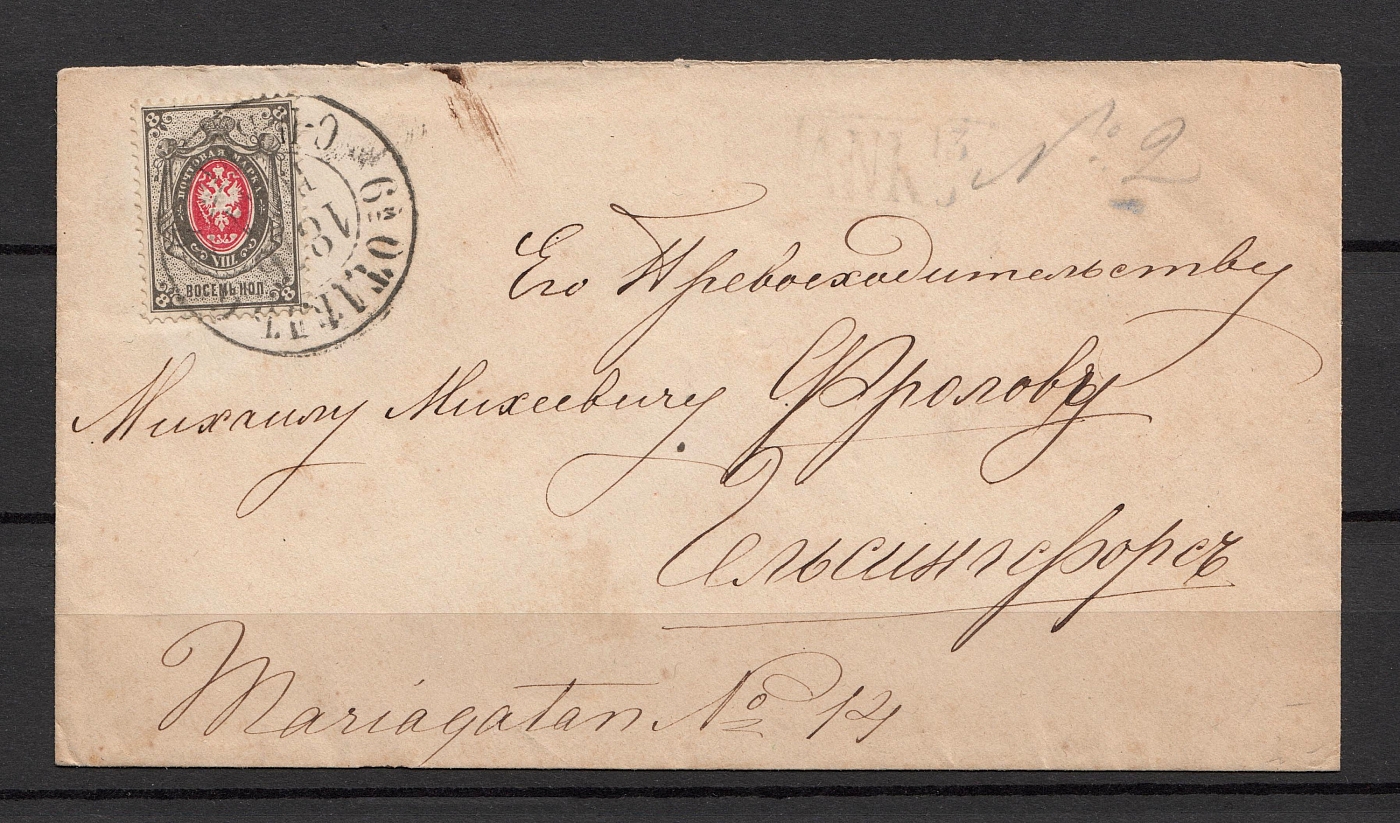 8 8
ПОЧТОВАЯ МАРКА
VIII
ВОСЕМЬ КОП.
8 8
6й ОТДѢЛЪ
№ 2
Его Превосходительству
Михаилу Михеевичу Фролову
Гельсингфорсъ
Mariagatan No 14